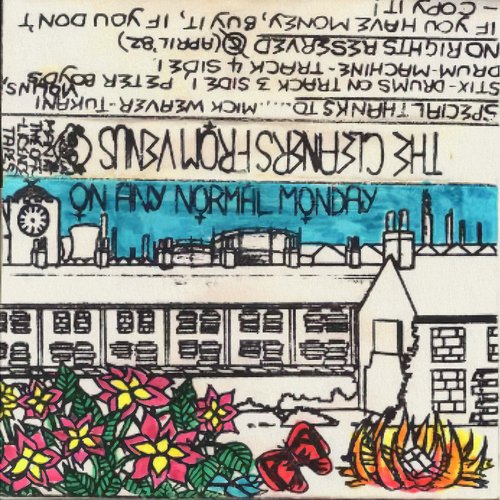 SPECIAL THANKS TO..... MICK WEAVER-TUKANI
STIX-DRUMS ON TRACK 3 SIDE 1 PETER BOYD'S
DRUM-MACHINE-TRACK 4 SIDE 1.
NO RIGHTS RESERVED © (APRIL '82)
IF YOU HAVE MONEY, BUY IT, IF YOU DON'T
- COPY IT!
THE CLEANERS FROM VENUS
THE OFF
-LICENCE
TAPES
ON ANY NORMAL MONDAY